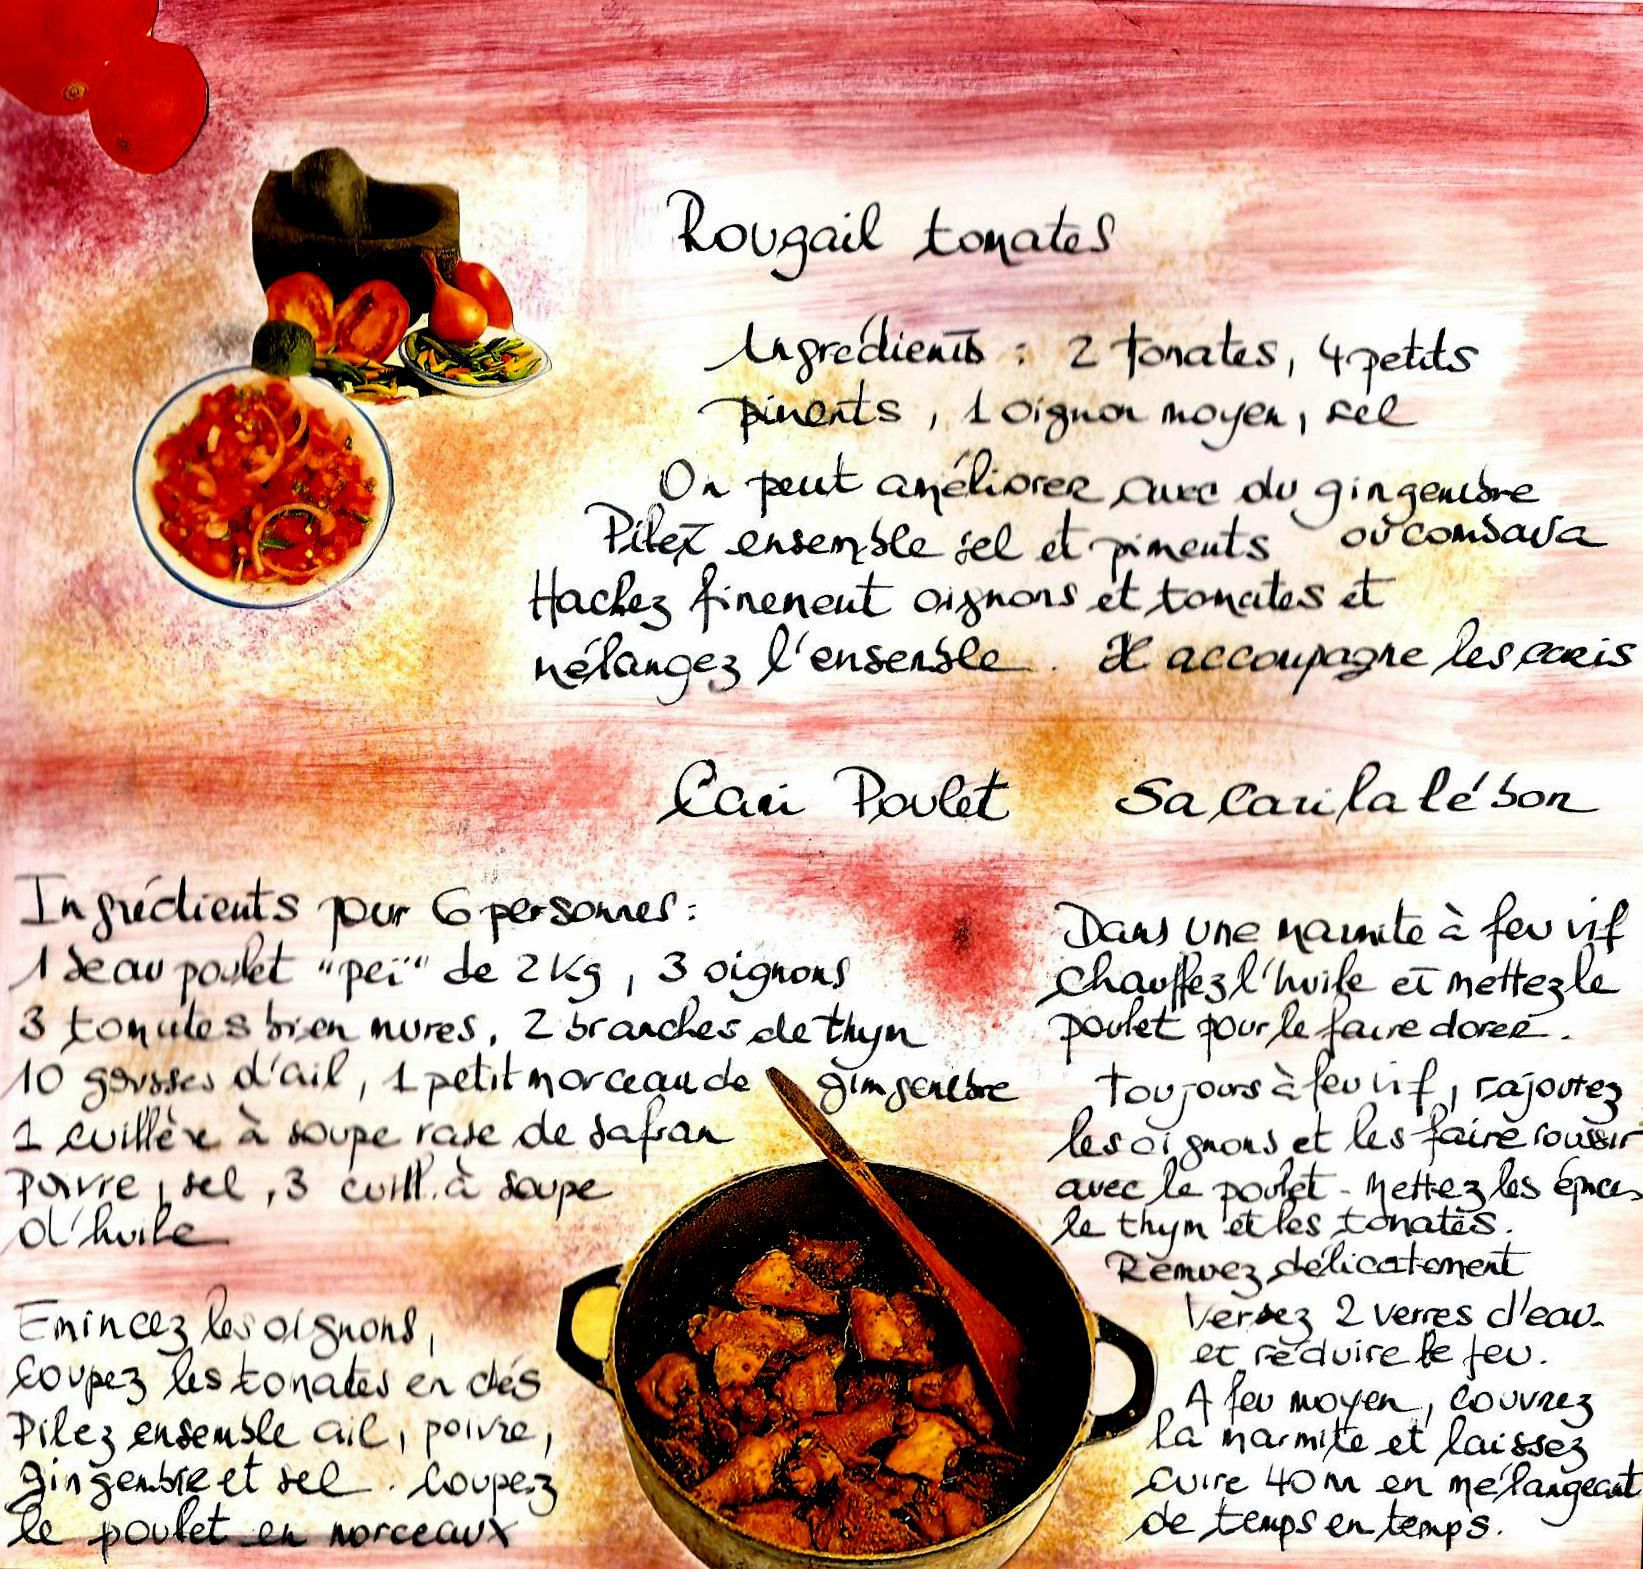 Rougail tomates
Ingrédients : 2 tomates, 4 petits
piments, 1 oignon moyen, sel
On peut améliorer avec du gingembre
ou combava
Pilez ensemble sel et piments
Hachez finement oignons et tomates et
mélangez l'ensemble. Il accompagne les caris
Cari Poulet Sa cari la lé bon
Ingrédients pour 6 personnes :
1 beau poulet "peï" de 2 kg, 3 oignons
3 tomates bien mures, 2 branches de thym
10 gousses d'ail, 1 petit morceau de gingembre
1 cuillère à soupe rase de safran
poivre, sel, 3 cuill. à soupe
d'huile
Emincez les oignons,
coupez les tomates en dés
Pilez ensemble ail, poivre,
gingembre et sel. Coupez
le poulet en morceaux
Dans une marmite à feu vif
chauffez l'huile et mettez le
poulet pour le faire dorer.
Toujours à feu vif, rajoutez
les oignons et les faire roussir
avec le poulet - Mettez les épices
le thym et les tomates.
Remuez délicatement
Versez 2 verres d'eau
et réduire le feu.
A feu moyen, couvrez
la marmite et laissez
cuire 40 m en mélangeant
de temps en temps.